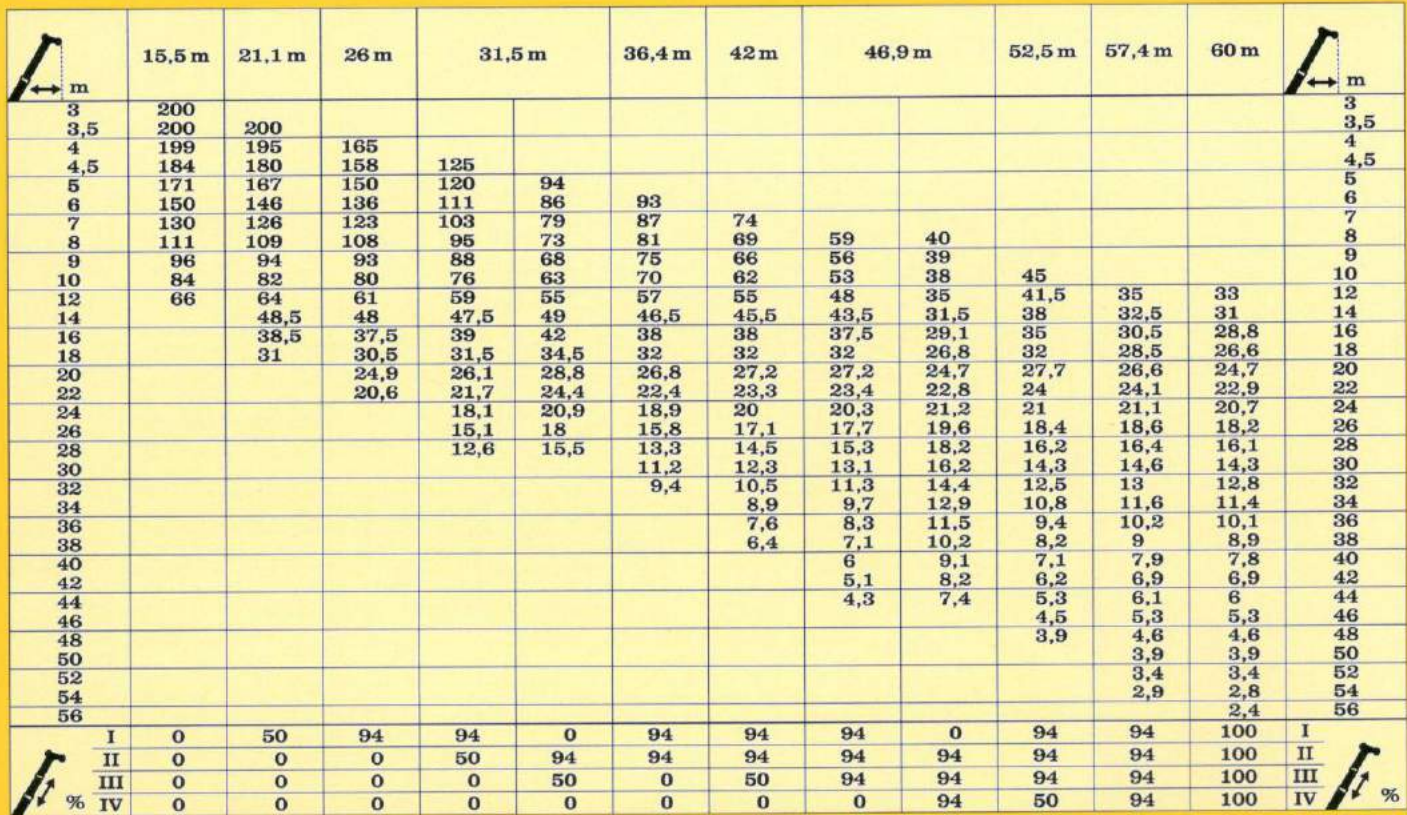 15,5 m 21,1 m 26 m 31,5 m 36,4 m 42 m 46,9 m 52,5 m 57,4 m 60 m
m m
3 200 3
3,5 200 200 3,5
4 199 195 165 4
4,5 184 180 158 125 4,5
5 171 167 150 120 94 5
6 150 146 136 111 86 93 6
7 130 126 123 103 79 87 74 7
8 111 109 108 95 73 81 69 59 40 8
9 96 94 93 88 68 75 66 56 39 9
10 84 82 80 76 63 70 62 53 38 45 10
12 66 64 61 59 55 57 55 48 35 41,5 35 33 12
14 48,5 48 47,5 49 46,5 45,5 43,5 31,5 38 32,5 31 14
16 38,5 37,5 39 42 38 38 37,5 29,1 35 30,5 28,8 16
18 31 30,5 31,5 34,5 32 32 32 26,8 32 28,5 26,6 18
20 24,9 26,1 28,8 26,8 27,2 27,2 24,7 27,7 26,6 24,7 20
22 20,6 21,7 24,4 22,4 23,3 23,4 22,8 24 24,1 22,9 22
24 18,1 20,9 18,9 20 20,3 21,2 21 21,1 20,7 24
26 15,1 18 15,8 17,1 17,7 19,6 18,4 18,6 18,2 26
28 12,6 15,5 13,3 14,5 15,3 18,2 16,2 16,4 16,1 28
30 11,2 12,3 13,1 16,2 14,3 14,6 14,3 30
32 9,4 10,5 11,3 14,4 12,5 13 12,8 32
34 8,9 9,7 12,9 10,8 11,6 11,4 34
36 7,6 8,3 11,5 9,4 10,2 10,1 36
38 6,4 7,1 10,2 8,2 9 8,9 38
40 6 9,1 7,1 7,9 7,8 40
42 5,1 8,2 6,2 6,9 6,9 42
44 4,3 7,4 5,3 6,1 6 44
46 4,5 5,3 5,3 46
48 3,9 4,6 4,6 48
50 3,9 3,9 50
52 3,4 3,4 52
54 2,9 2,8 54
56 2,4 56
I 0 50 94 94 0 94 94 94 0 94 94 100 I
II 0 0 0 50 94 94 94 94 94 94 94 100 II
III 0 0 0 0 50 0 50 94 94 94 94 100 III
% IV 0 0 0 0 0 0 0 0 94 50 94 100 IV %